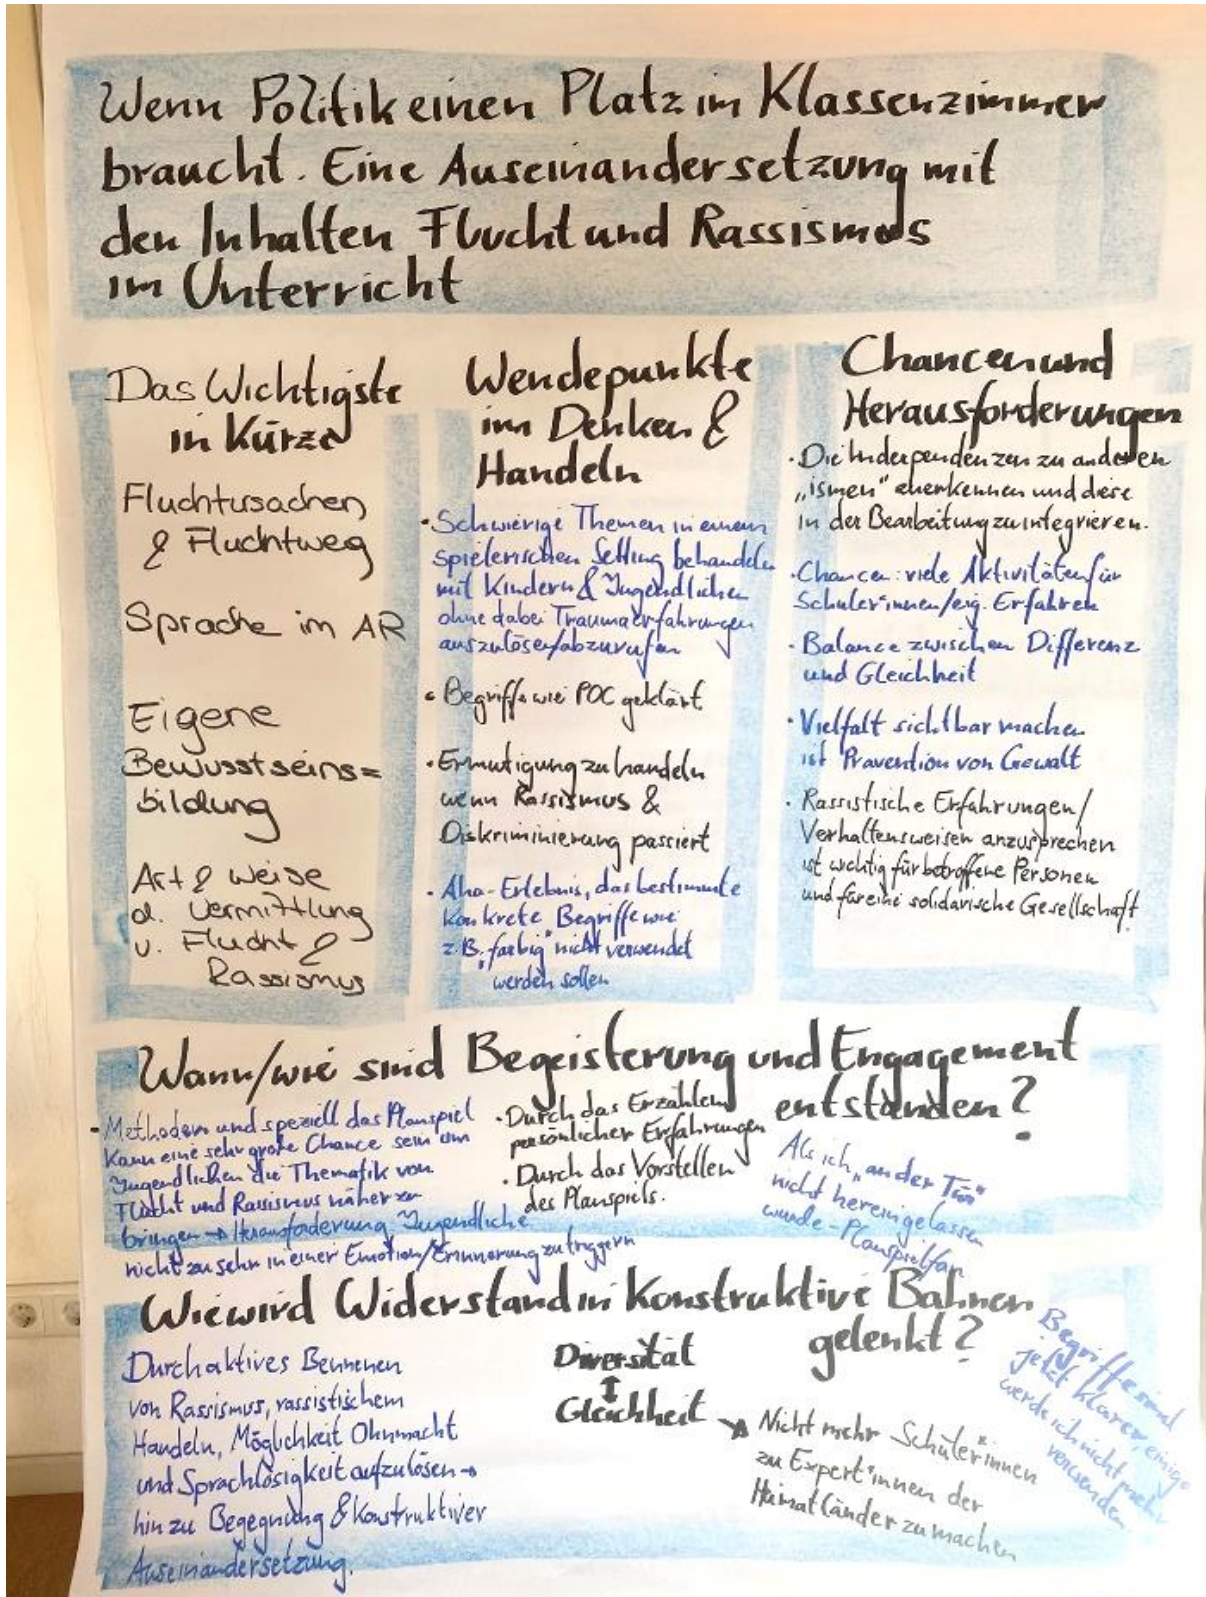 Wenn Politik einen Platz im Klassenzimmer
braucht. Eine Auseinandersetzung mit
den Inhalten Flucht und Rassismus
im Unterricht
Das Wichtigste
in Kürze
Fluchtursachen
& Fluchtweg
Sprache im AR
Eigene
Bewusstseins=
bildung
Art & Weise
d. Vermittlung
v. Flucht &
Rassismus
Wendepunkte
im Denken &
Handeln
· Schwierige Themen in einem
spielerischen Setting behandeln
mit Kindern & Jugendlichen
ohne dabei Traumaerfahrungen
auszulösen/abzurufen
· Begriffe wie POC geklärt
· Ermutigung zu handeln
wenn Rassismus &
Diskriminierung passiert
· Aha-Erlebnis, das bestimmte
konkrete Begriffe wie
z.B. "farbig" nicht verwendet
werden sollen
Chancen und
Herausforderungen
· Die Inderpendenzen zu anderen
„ismen" anerkennen und diese
in der Bearbeitung zu integrieren.
· Chancen: viele Aktivitäten für
Schüler*innen/eig. Erfahren
· Balance zwischen Differenz
und Gleichheit
· Vielfalt sichtbar machen
ist Prävention von Gewalt
· Rassistische Erfahrungen/
Verhaltensweisen anzusprechen
ist wichtig für betroffene Personen
und für eine solidarische Gesellschaft
Wann/wie sind Begeisterung und Engagement
entstanden?
- Methoden und speziell das Planspiel
kann eine sehr große Chance sein um
Jugendlichen die Thematik von
Flucht und Rassismus näher zu
bringen → Herausforderung Jugendliche
nicht zu sehr in einer Emotion/Erinnerung zu triggern
· Durch das Erzählen
persönlicher Erfahrungen
· Durch das Vorstellen
des Planspiels.
Als ich „an der Tür"
nicht hereingelassen
wurde - Planspiel
Wie wird Widerstand in konstruktive Bahnen
gelenkt?
Durch aktives Bennenen
von Rassismus, rassistischem
Handeln, Möglichkeit Ohnmacht
und Sprachlosigkeit aufzulösen →
hin zu Begegnung & konstruktiver
Auseinandersetzung.
Diversität
↕
Gleichheit
→ Nicht mehr Schüler*innen
zu Expert*innen der
Heimatländer zu machen
Begriffe sind
jetzt klarer, einige
werde ich nicht mehr
verwenden